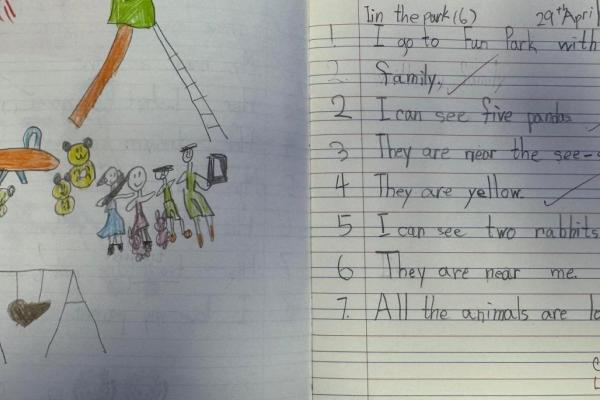 Iin the park (6) 29th April
1. I go to Fun Park with
family.
2 I can see five pandas
3 They are near the see-
4 They are yellow.
5 I can see two rabbits
6 They are near me.
7. All the animals are